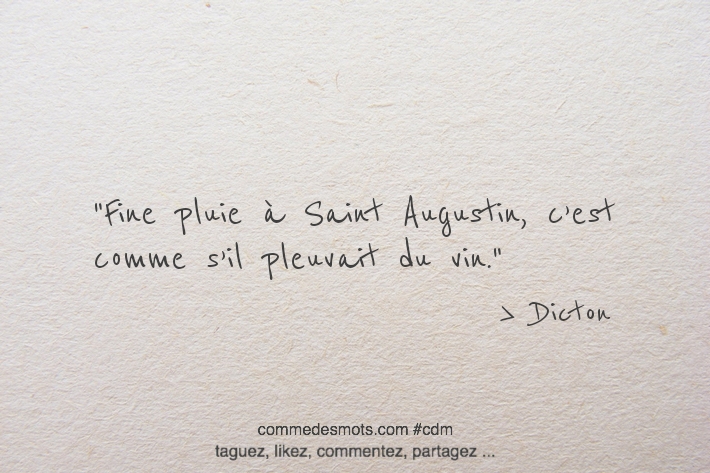 "Fine pluie à Saint Augustin, c'est
comme s'il pleuvait du vin."
> Dicton
commedesmots.com #cdm
taguez, likez, commentez, partagez ...